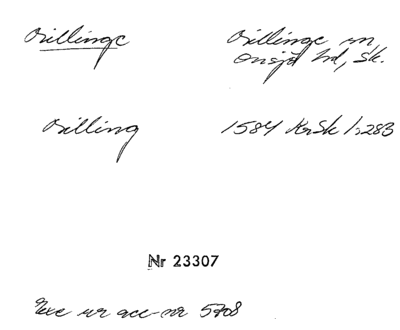 Villinge Villinge sn,
Onsjö hd, Sk.
Villing 1584 KrSk 1:283
Nr 23307
Exc ur acc-nr 5708